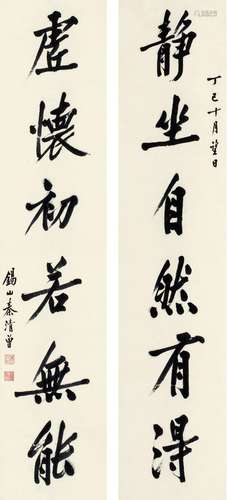 丁巳十月望日
靜坐自然有得
虛懷初若無能
錫山秦清曾